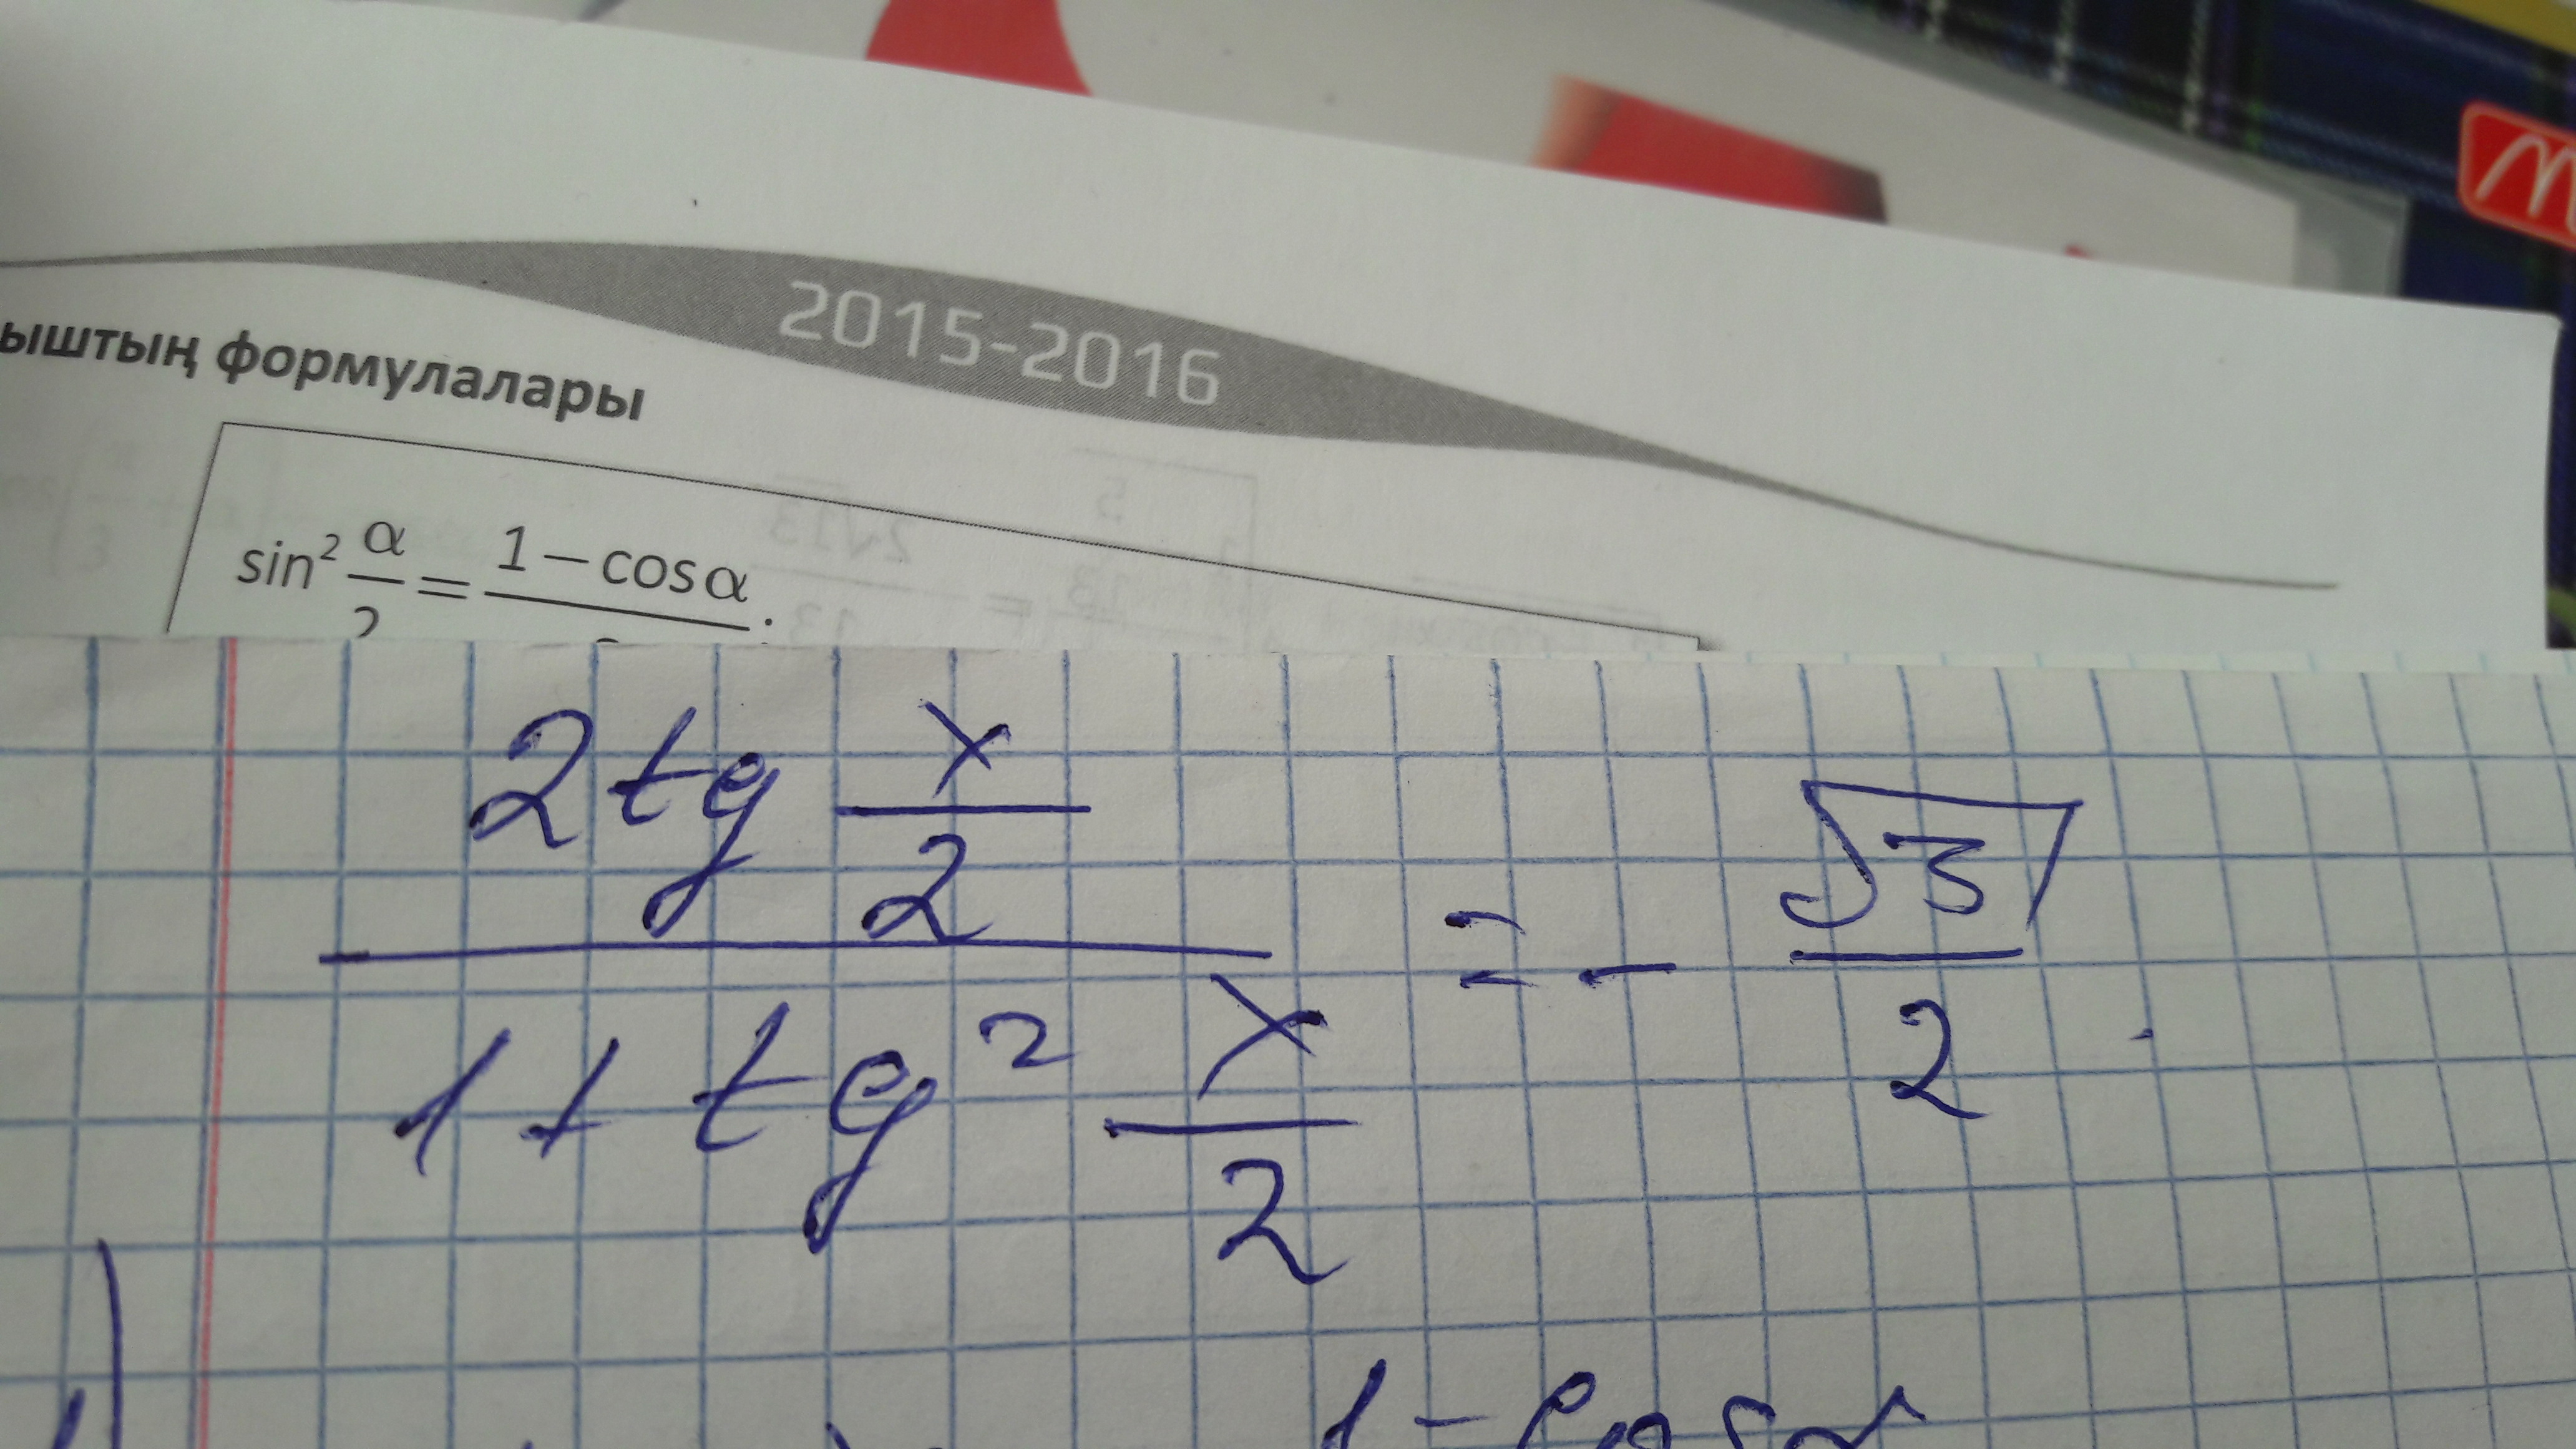 2015-2016
ыштың формулалары
sin² α/2 = 1 − cosα
2 tg x/2
= - √3/2
1 + tg² x/2
1 - cosα